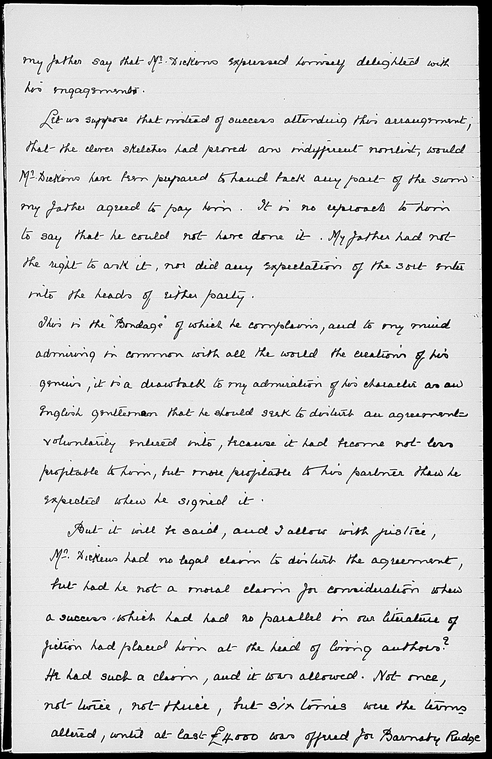 my father say that Mr. Dickens expressed himself delighted with
his engagements.
Let us suppose that instead of success attending this arrangement,
that the clever sketches had proved an indifferent novelist, would
Mr. Dickens have been prepared to hand back any part of the sum
my father agreed to pay him. It is no reproach to him
to say that he could not have done it. My father had not
the right to ask it, nor did any expectation of the sort enter
into the heads of either party.
This is the "Bondage" of which he complains, and to my mind
admiring in common with all the world the creations of his
genius, it is a drawback to my admiration of his character as an
English gentleman that he should seek to disturb an agreement
voluntarily entered into, because it had become not less
profitable to him, but more profitable to his partner than he
expected when he signed it.
But it will be said, and I allow with justice,
Mr. Dickens had no legal claim to disturb the agreement,
but had he not a moral claim for consideration when
a success which had had no parallel in our literature of
fiction had placed him at the head of living authors?
He had such a claim, and it was allowed. Not once,
not twice, not thrice, but six times were the terms
altered, until at last £4000 was offered for Barnaby Rudge